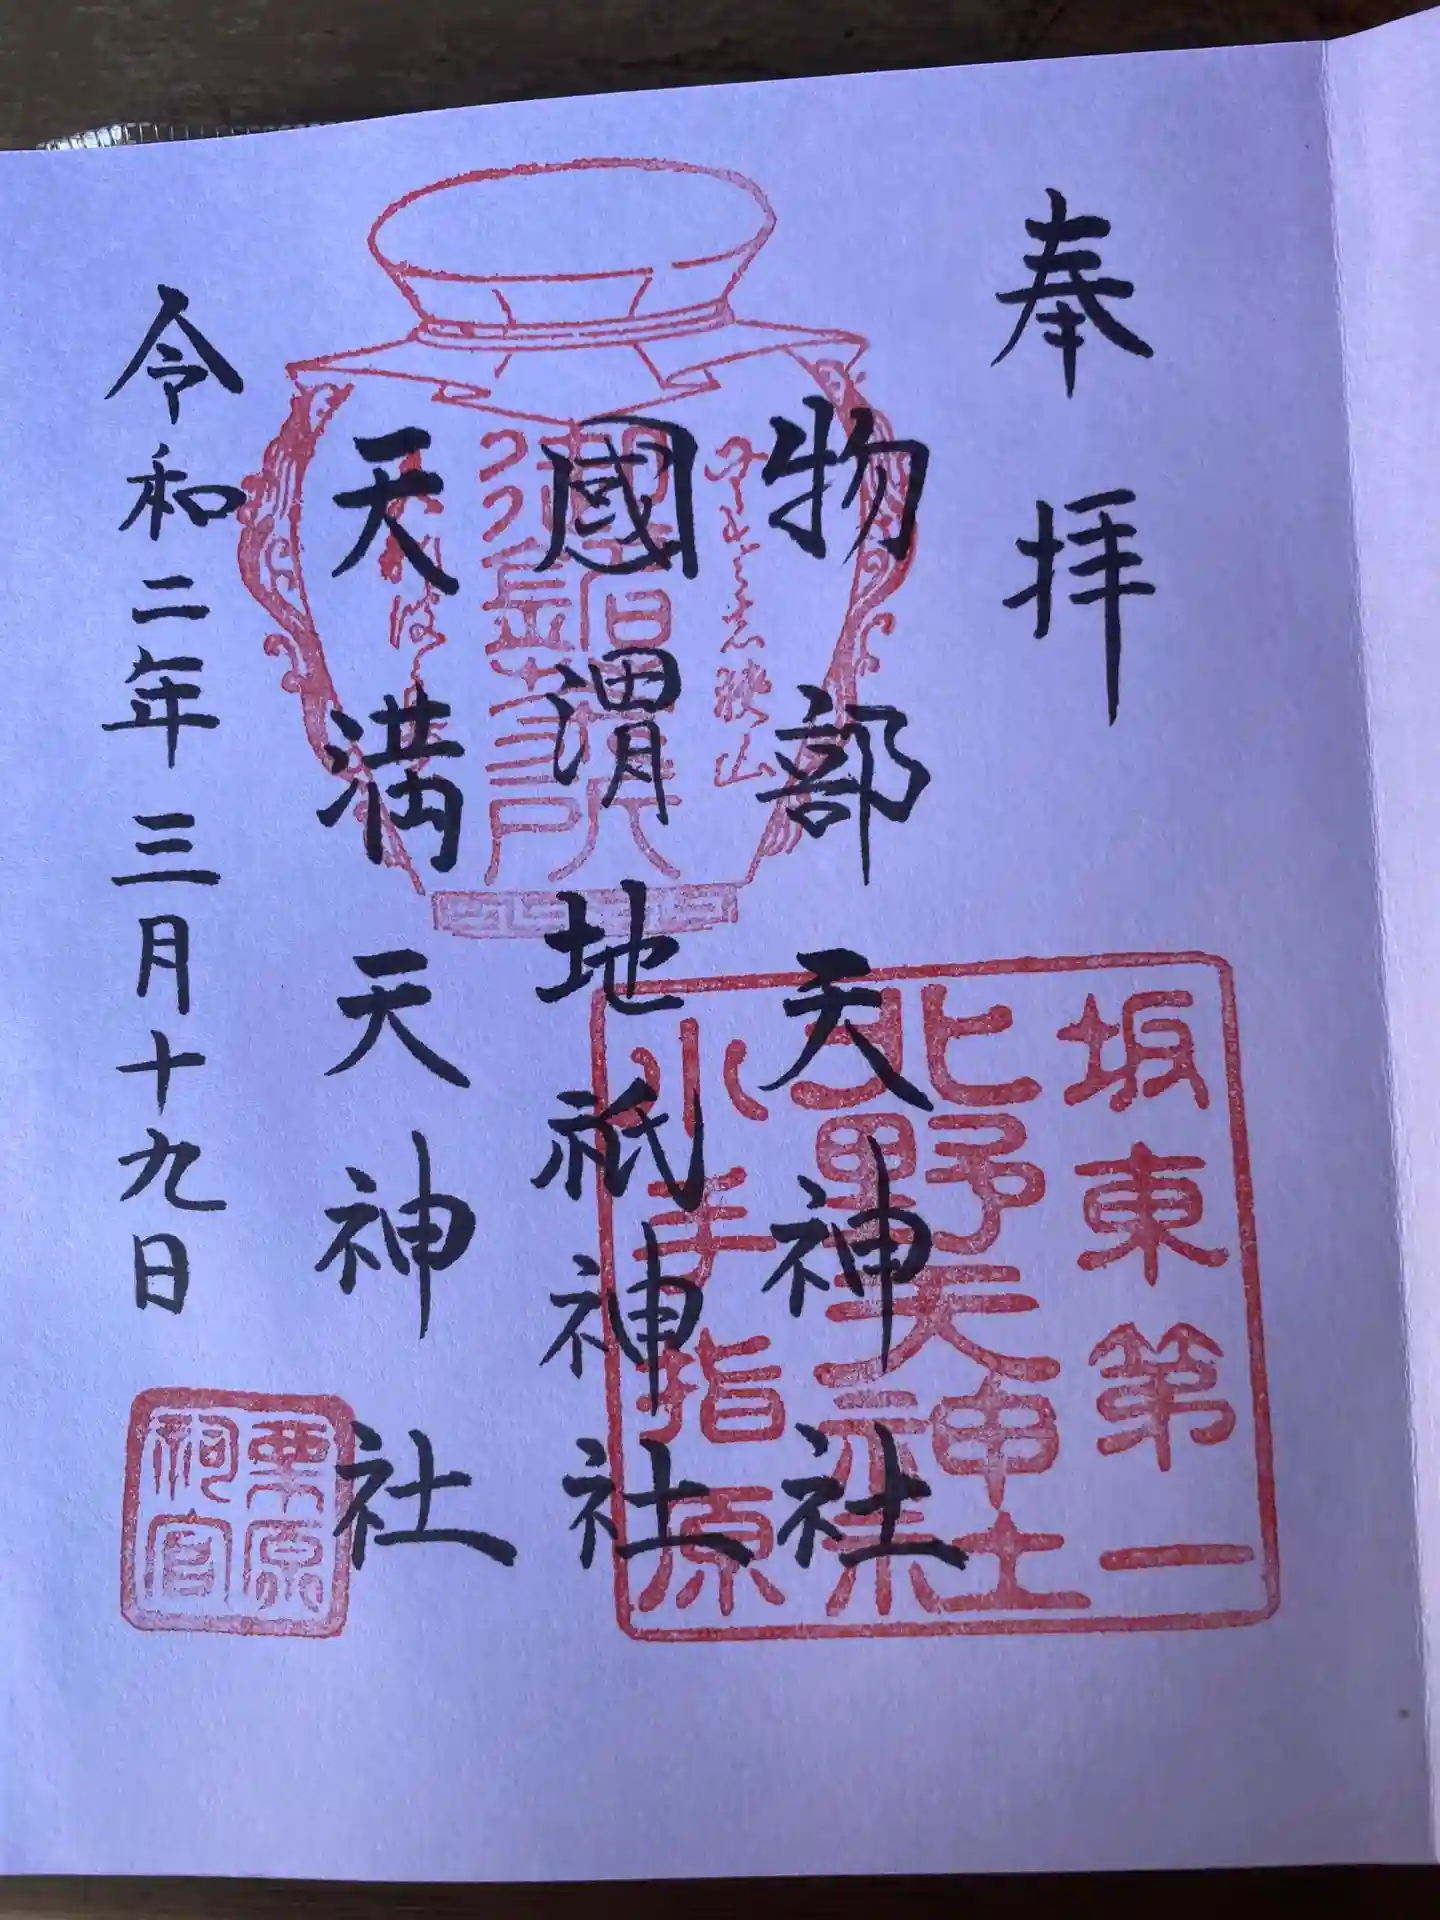 奉拝
物部天神社
國渭地祇神社
天満天神社
令和二年三月十九日
坂東第一
北野天神社
小手指原
栗原
祠官